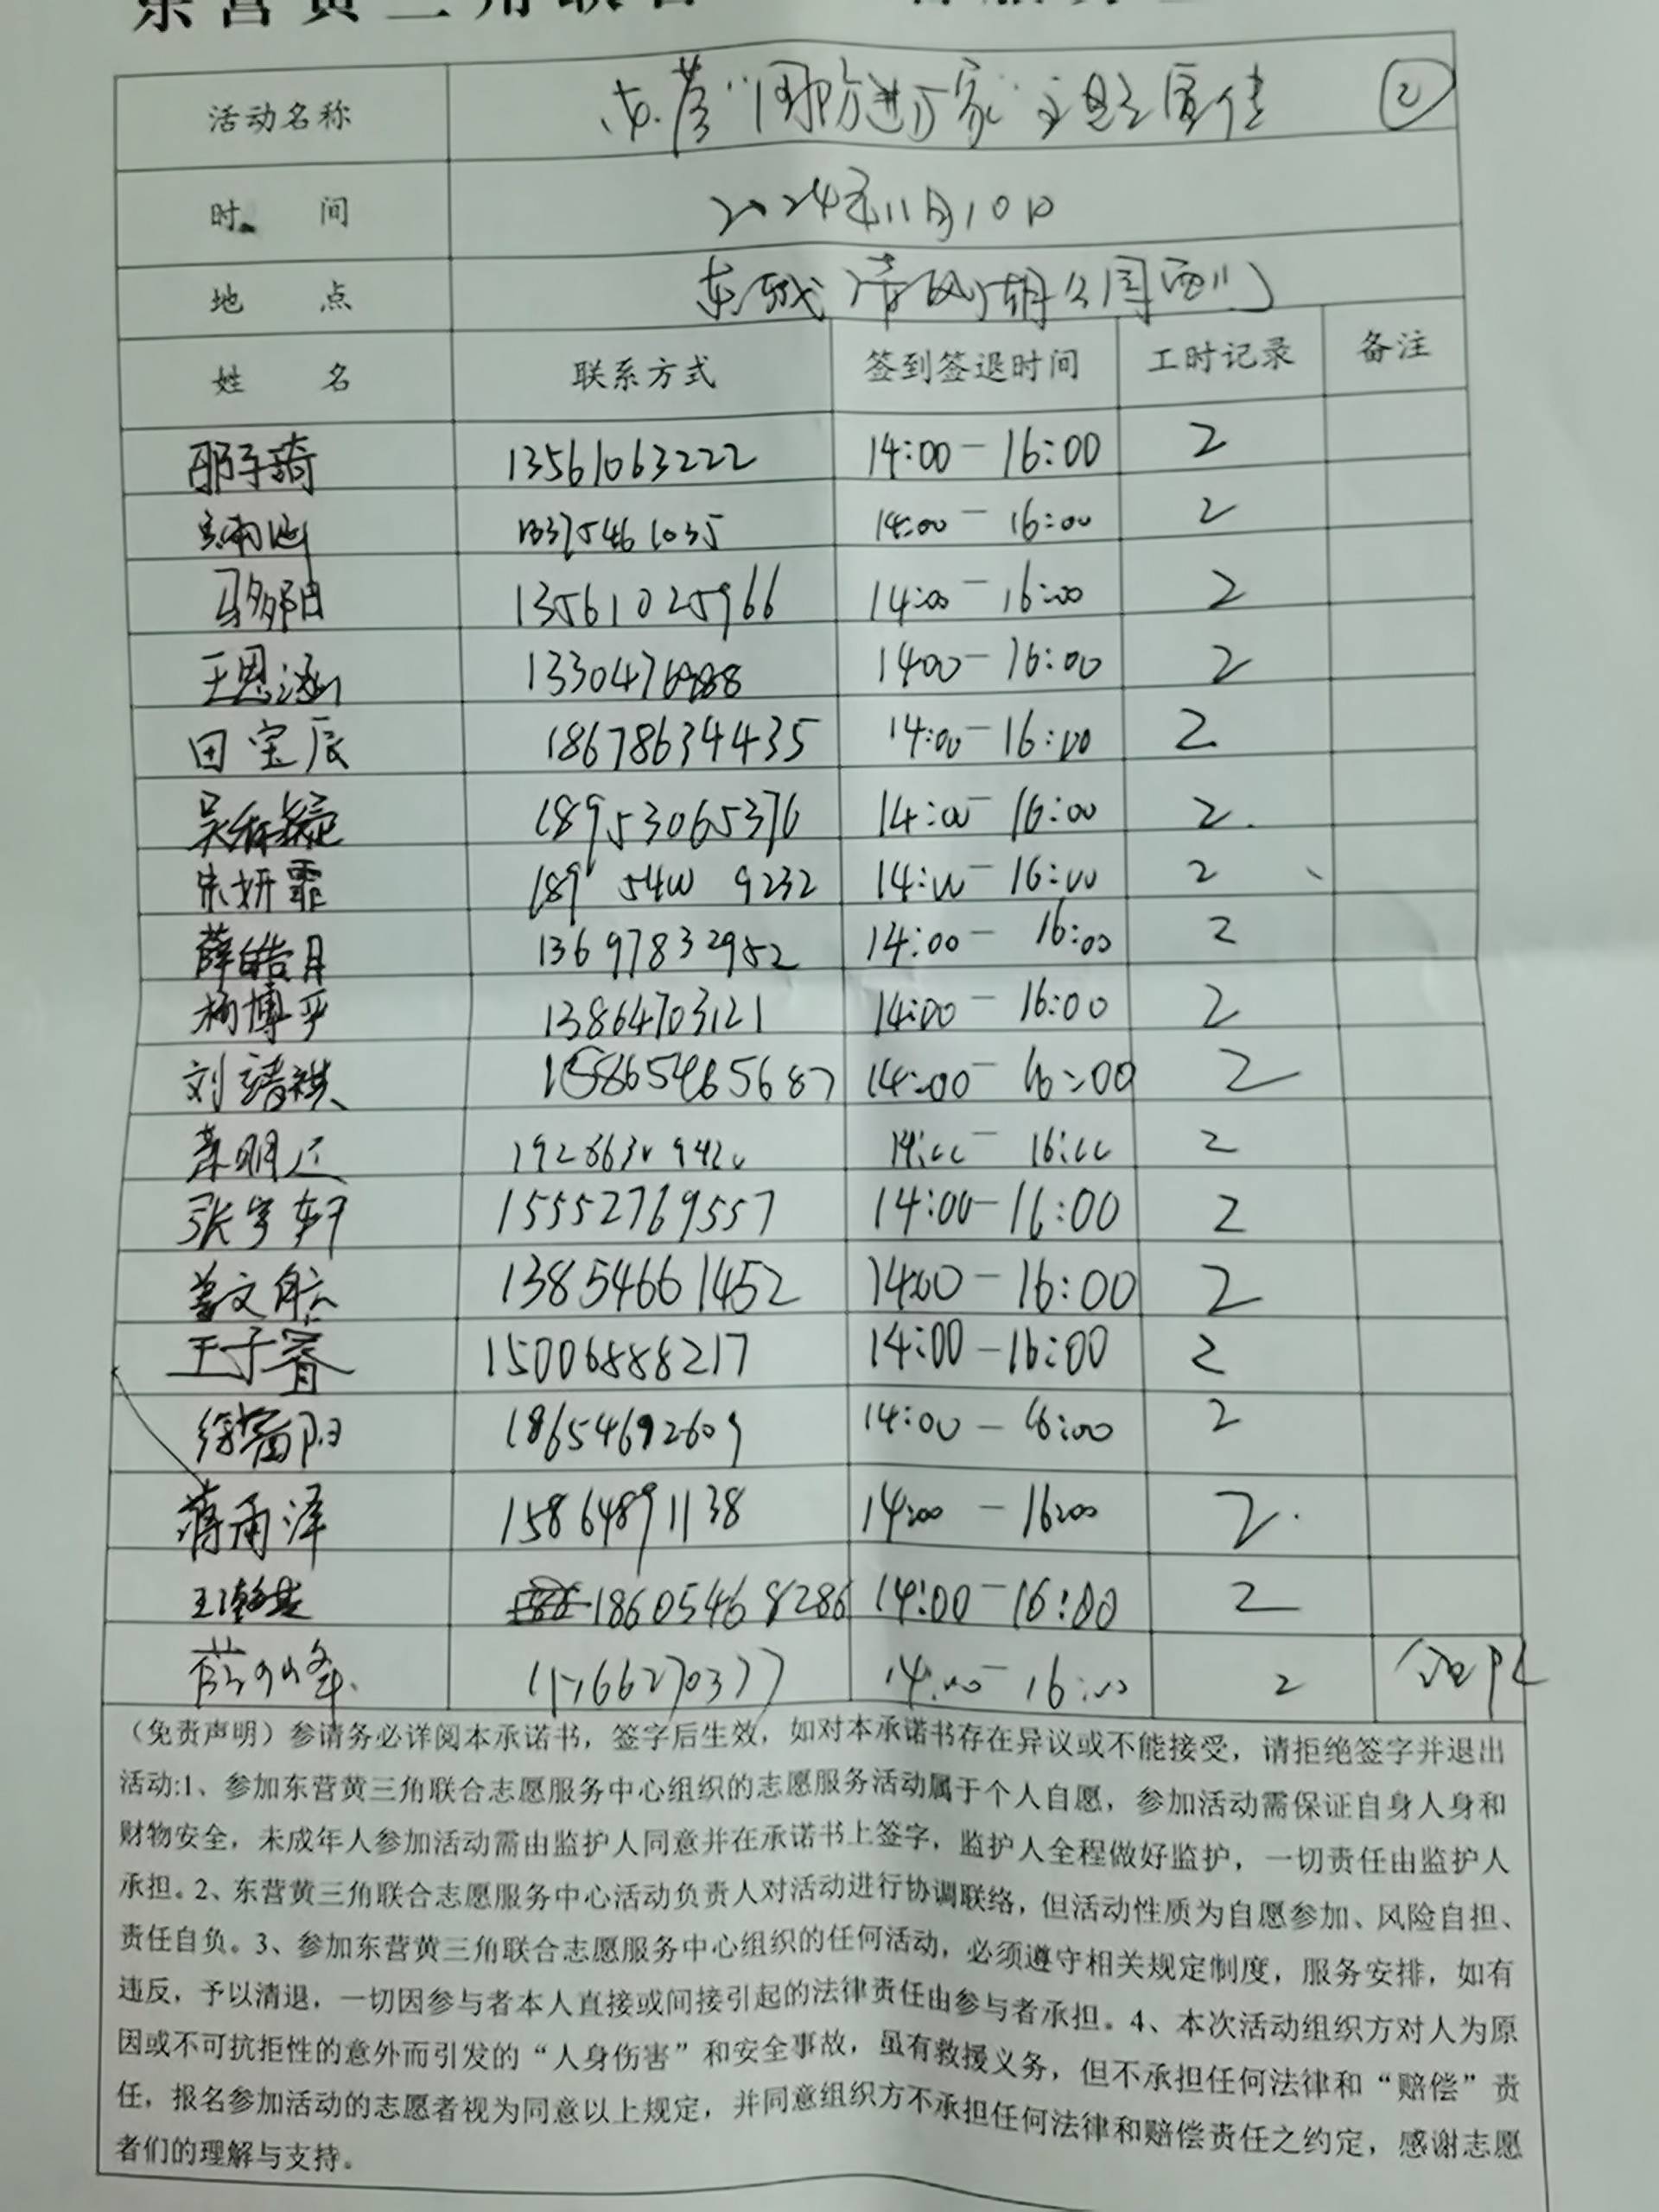 东营黄三角联合
活动名称 东营“国防进万家”主题宣传 ②
时 间 2024年11月10日
地 点 东城清风湖公园西门
姓 名 联系方式 签到签退时间 工时记录 备注
邵子琦 13561063222 14:00-16:00 2
13375461035 14:00-16:00 2
13561025966 14:00-16:00 2
王思涵 14:00-16:00 2
田宝辰 18678634435 14:00-16:00 2
18953065376 14:00-16:00 2
朱妍霏 189 5400 9232 14:00-16:00 2
薛皓月 13697832952 14:00-16:00 2
杨博平 13864703121 14:00-16:00 2
刘靖祺 14:00-16:00 2
14:00-16:00 2
张宇轩 15552769557 14:00-16:00 2
姜文航 13854661452 14:00-16:00 2
王子睿 15006888217 14:00-16:00 2
18654692609 14:00-16:00 2
蒋雨泽 15864891138 14:00-16:00 2
18605468286 14:00-16:00 2
17766270377 14:00-16:00 2
（免责声明）参请务必详阅本承诺书，签字后生效，如对本承诺书存在异议或不能接受，请拒绝签字并退出
活动:1、参加东营黄三角联合志愿服务中心组织的志愿服务活动属于个人自愿，参加活动需保证自身人身和
财物安全，未成年人参加活动需由监护人同意并在承诺书上签字，监护人全程做好监护，一切责任由监护人
承担。2、东营黄三角联合志愿服务中心活动负责人对活动进行协调联络，但活动性质为自愿参加、风险自担、
责任自负。3、参加东营黄三角联合志愿服务中心组织的任何活动，必须遵守相关规定制度，服务安排，如有
违反，予以清退，一切因参与者本人直接或间接引起的法律责任由参与者承担。4、本次活动组织方对人为原
因或不可抗拒性的意外而引发的“人身伤害”和安全事故，虽有救援义务，但不承担任何法律和“赔偿”责
任，报名参加活动的志愿者视为同意以上规定，并同意组织方不承担任何法律和赔偿责任之约定，感谢志愿
者们的理解与支持。